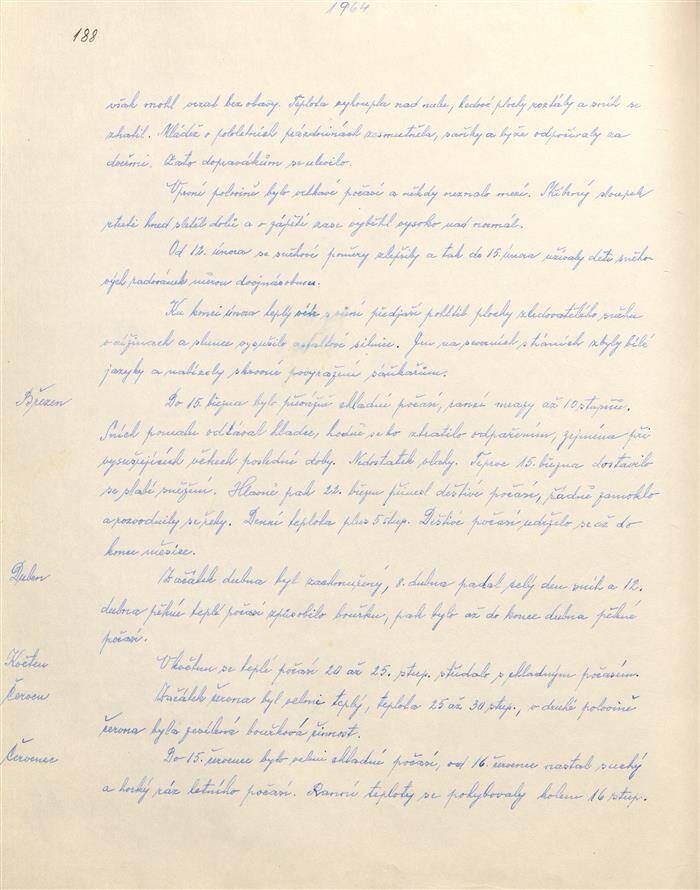 1964
188
však mohl vozat bez obavy. Teplota vyloupla nad nulu, ledové plochy roztály a sníh se
ztratil. Mládež o pololetních prázdninách zesmutněla, saňky a lyže odpočívaly za
dveřmi. Zato dopravákům se ulevilo.
V první polovině bylo velkové počasí a někdy neznalo mezí. Stříbrný sloupek
rtuti hned slétl dolů a v zápětí zase vyběhl vysoko nad normál.
Od 12. února se sněhové poměry zlepšily a tak do 15. února užívaly děti sněho-
vých radovánek měrou dvojnásobnou.
Ku konci února teplý vítr s vůní předjaří pohltil plochy zledovatělého sněhu
v nížinách a slunce vysušilo asfaltové silnice. Jen na severních stráních zbyly bílé
jazyky a nabízely skrovné povyražení sáňkařům.
Březen
Do 15. března bylo převážně chladné počasí, ranní mrazy až 10 stupňů.
Sníh pomalu odtával hladce, hodně se ho ztratilo odpařením, zejména při
vysušujících větrech poslední doby. Nedostatek vláhy. Teprve 15. března dostavilo
se slabé sněžení. Hlavně pak 22. březen přinesl deštivé počasí, řádně zamoklo
a rozvodnily se řeky. Denní teplota plus 5 stup. Deštivé počasí udrželo se až do
konce měsíce.
Duben
Začátek dubna byl zachmuřený, 8. dubna padal celý den sníh a 12.
dubna pěkné teplé počasí způsobilo bouřku, pak bylo až do konce dubna pěkné
počasí.
Květen
V květnu se teplé počasí 20 až 25. stup. střídalo s chladným počasím.
Červen
Začátek června byl velmi teplý, teplota 25 až 30 stup., v druhé polovině
června byla zesílená bouřková činnost.
Červenec
Do 15. července bylo velmi chladné počasí, od 16. července nastal suchý
a horký ráz letního počasí. Ranní teploty se pohybovaly kolem 16 stup.